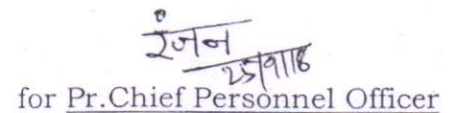 रंजन
25/9/18
for Pr.Chief Personnel Officer